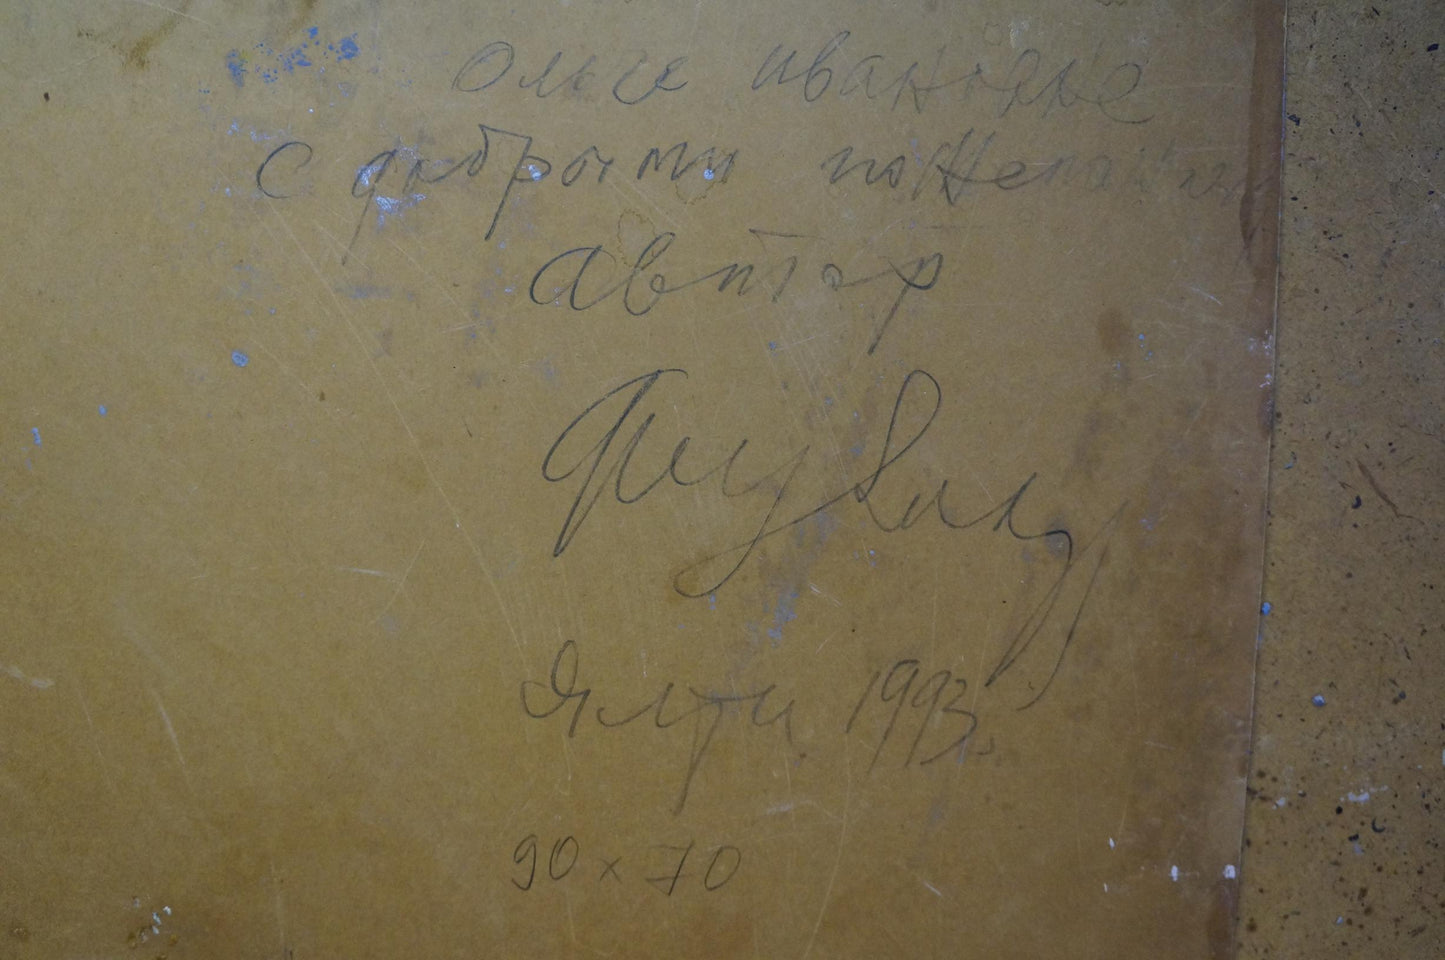 Ольге Ивановне
с добрыми пожеланиями
автор
Ялта 1993.
90 x 70